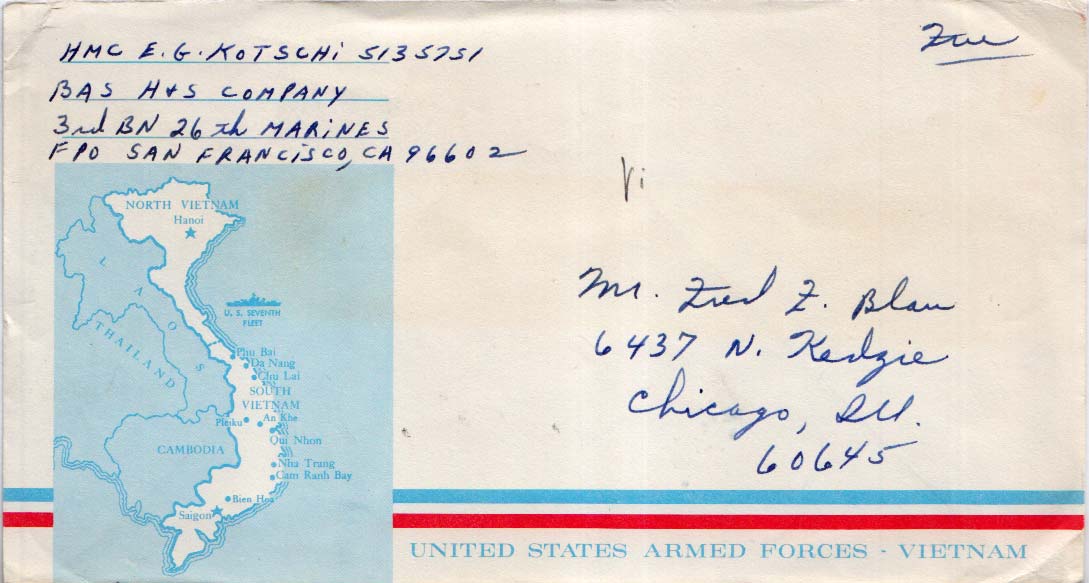 HMC E. G. KOTSCHi 5135751
Free
BAS H+S COMPANY
3rd BN 26th MARiNES
FPO SAN FRANCiSCO, CA 96602
Vi
NORTH VIETNAM
Hanoi
LAOS
THAILAND
U. S. SEVENTH
FLEET
Phu Bai
Da Nang
Chu Lai
SOUTH
VIETNAM
Pleiku
An Khe
Qui Nhon
CAMBODIA
Nha Trang
Cam Ranh Bay
Bien Hoa
Saigon
Mr. Fred Z. Blau
6437 N. Kedzie
Chicago, Ill.
60645
UNITED STATES ARMED FORCES - VIETNAM